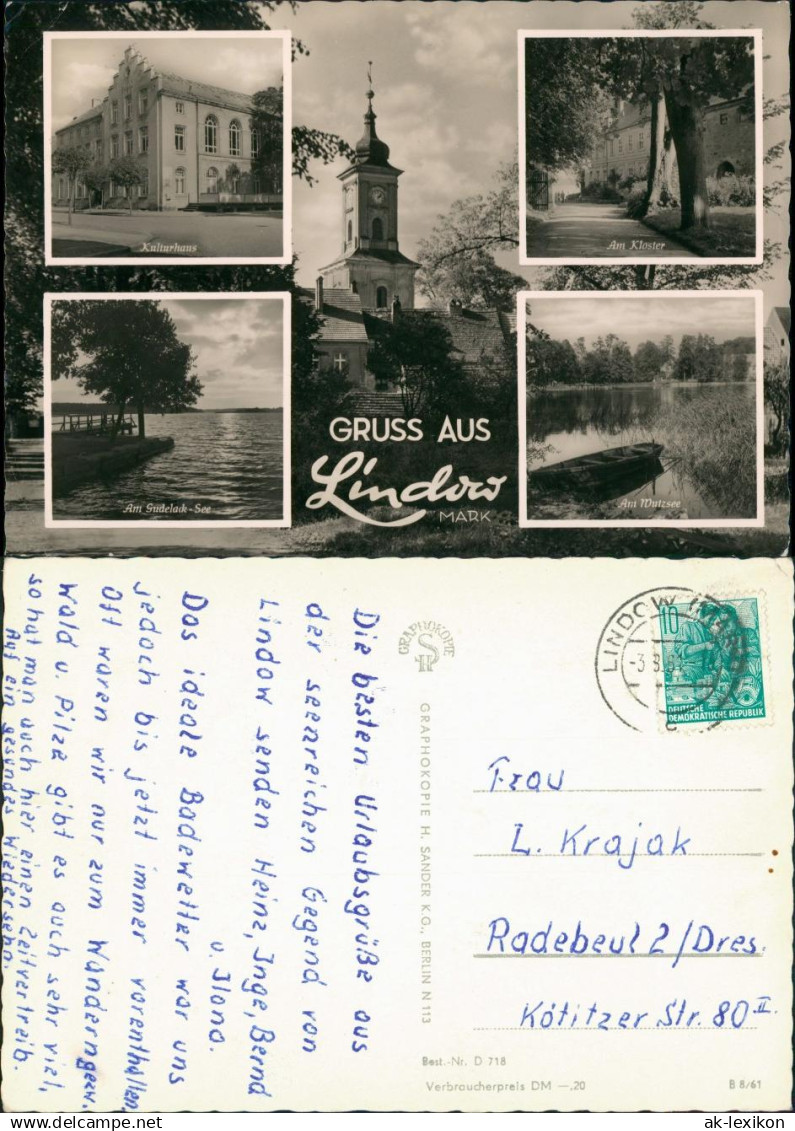 Kulturhaus
Am Kloster
Am Gudelack-See
Am Wutzsee
GRUSS AUS
Lindow
MARK
Die besten Urlaubsgrüße aus
der seenreichen Gegend von
Lindow senden Heinz, Inge, Bernd
u. Ilona.
Das ideale Badewetter war uns
jedoch bis jetzt immer vorenthalten.
Oft waren wir nur zum Wandern gezw.
Wald u. Pilze gibt es auch sehr viel,
so hat man auch hier einen Zeitvertreib.
Auf ein gesundes Wiedersehn.
GRAPHOKOPIE
GRAPHOKOPIE H. SANDER K.G., BERLIN N 113
LINDOW (MARK)
-3.8.61
c
10
5
DEUTSCHE
DEMOKRATISCHE REPUBLIK
Frau
L. Krajak
Radebeul 2/Dres.
Kötitzer Str. 80 II.
Best.-Nr. D 718
Verbraucherpreis DM —,20
B 8/61
ak-lexikon